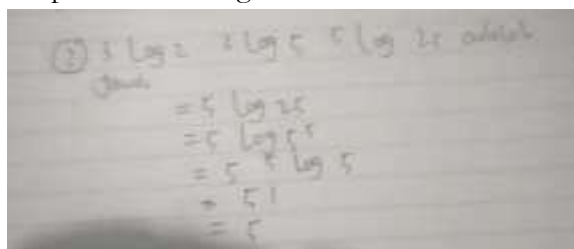 ② 3 log 2 2 log 5 5 log 25 adalah
Jawab
= 5 log 25
= 5 log 5⁵
= 5 ⁵ log 5
= 5 1
= 5